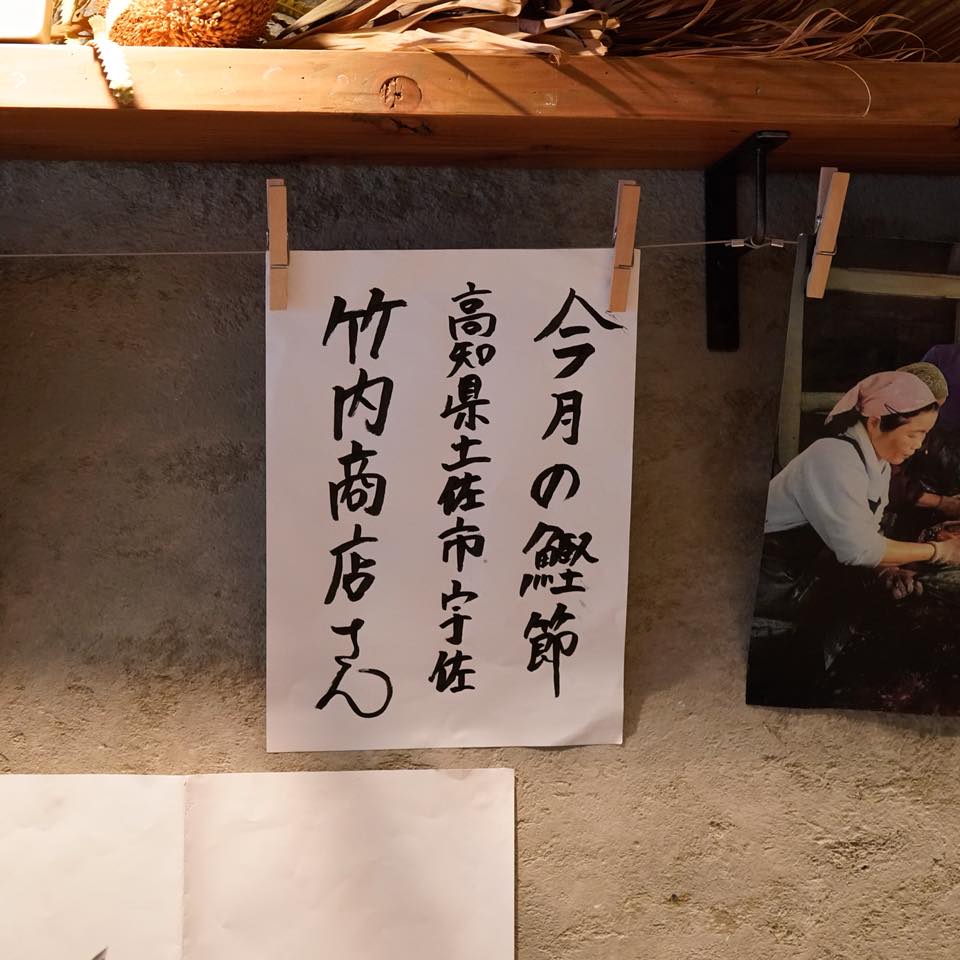 今月の鰹節
高知県土佐市宇佐
竹内商店さん